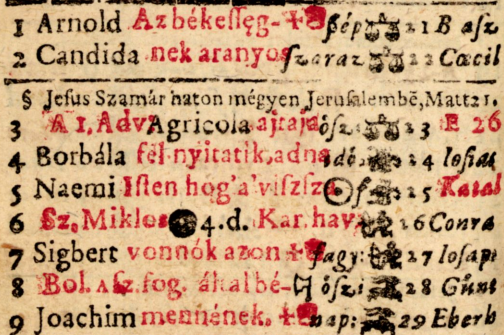 1 Arnold Az békeſſęg- ſzép 21 B aſz
2 Candida nek aranyos ſzaraz 22 Cœcil
§ Jeſus Szamár haton mégyen Jeruſalembē, Matt 21.
3 A 1. Adv Agricola ajtaja 23 E 26
4 Borbála fél nyitatik, adna idő 24 Ioſias
5 Naemi Iſten hog'a' viſzſza 25 Katal
6 Sz. Miklos 4. d. Kar. hav 26 Conra
7 Sigbert vonnók azon fagy: 27 Ioſaph
8 Bol. Aſz. fog. által bé- őſzi 28 Günt
9 Joachim mennének. nap: 29 Eberh